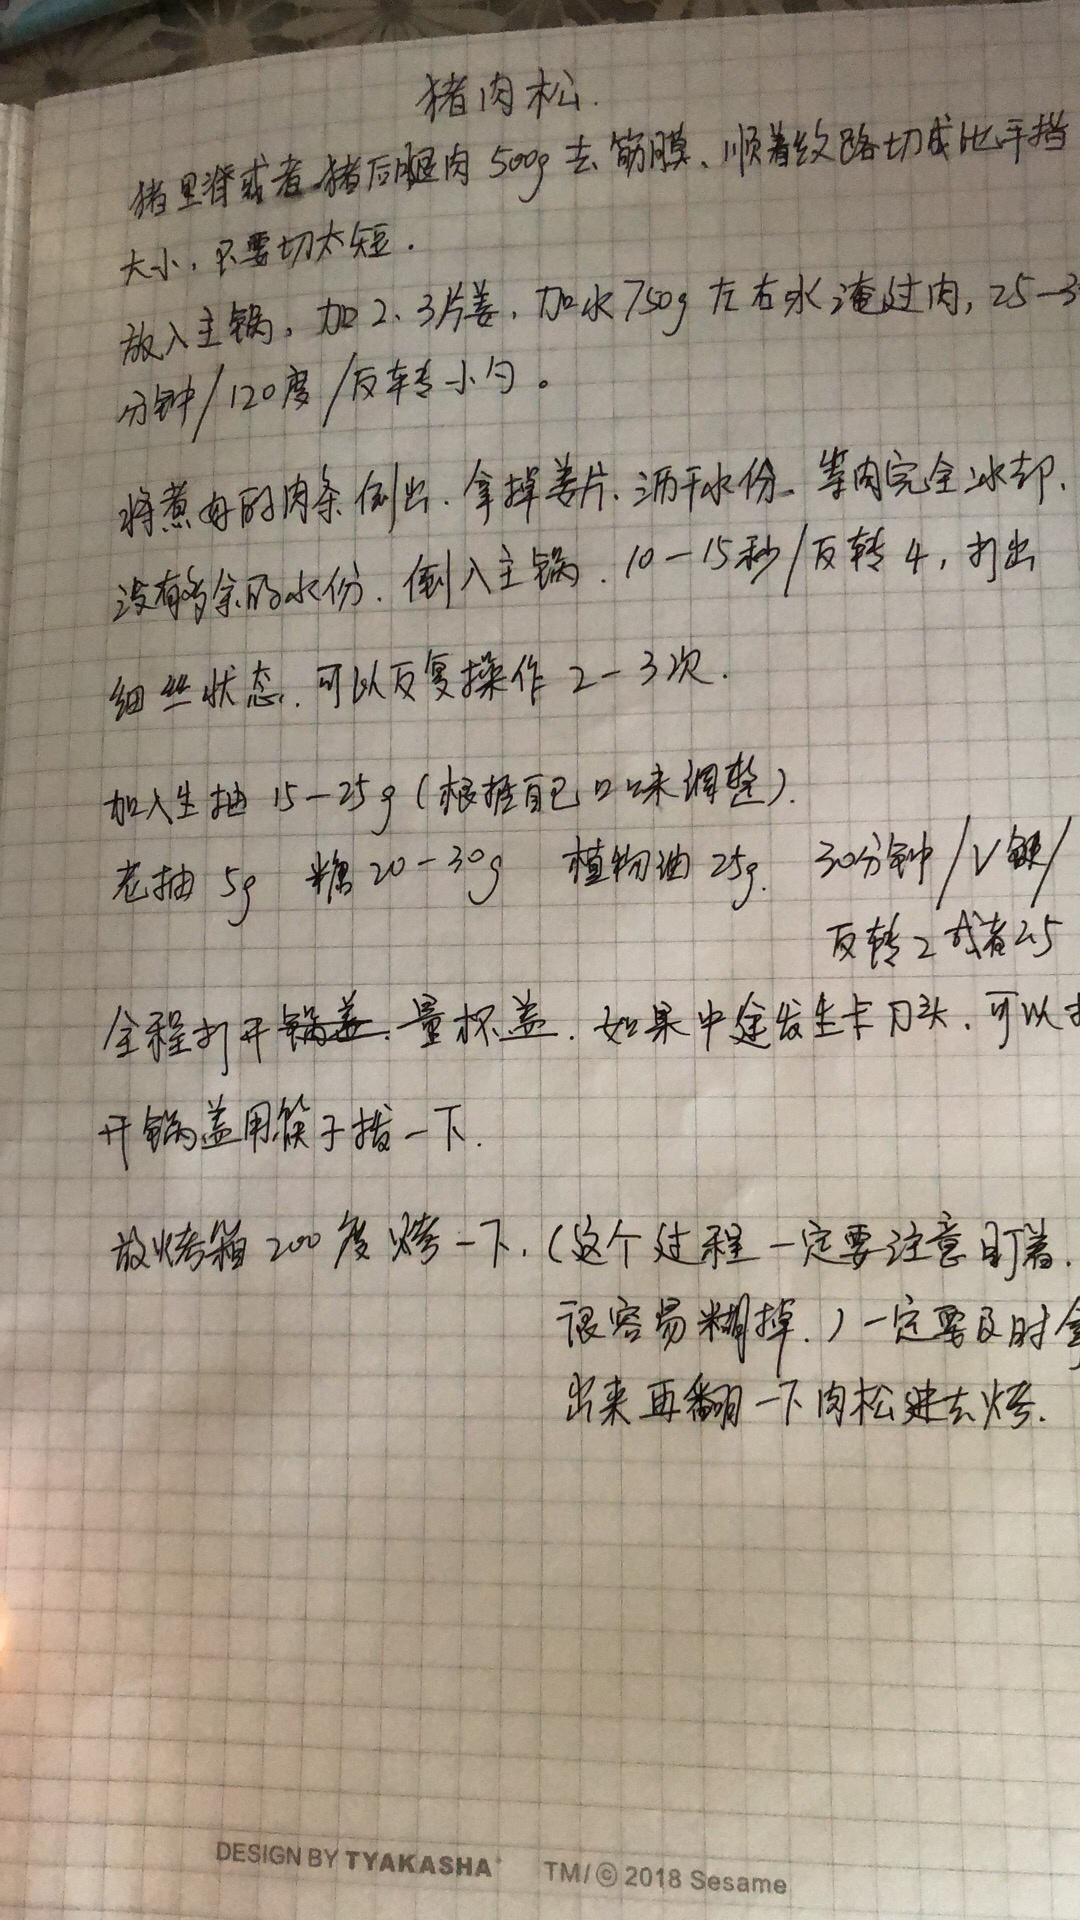 猪肉松.
猪里脊或者猪后腿肉 500g 去筋膜、顺着纹路切成比手指
大小，不要切太短.
放入主锅，加2、3片姜，加水750g左右水淹过肉，25-3
分钟/120度/反转小勺。
将煮好的肉条倒出.拿掉姜片、沥干水份.等肉完全冰却、
没有多余的水份.倒入主锅.10-15秒/反转4，打出
细丝状态.可以反复操作2-3次.
加入生抽 15-25g (根据自己口味调整).
老抽 5g 糖20-30g 植物油 25g. 30分钟/V锅/
反转2或者2.5
全程打开锅盖.量杯盖.如果中途发生卡刀头.可以
开锅盖用筷子拨一下.
放烤箱 200度烤一下.(这个过程一定要注意盯着.
很容易糊掉.)一定要及时拿
出来再翻一下肉松进去烤.
DESIGN BY TYAKASHA TM/© 2018 Sesame